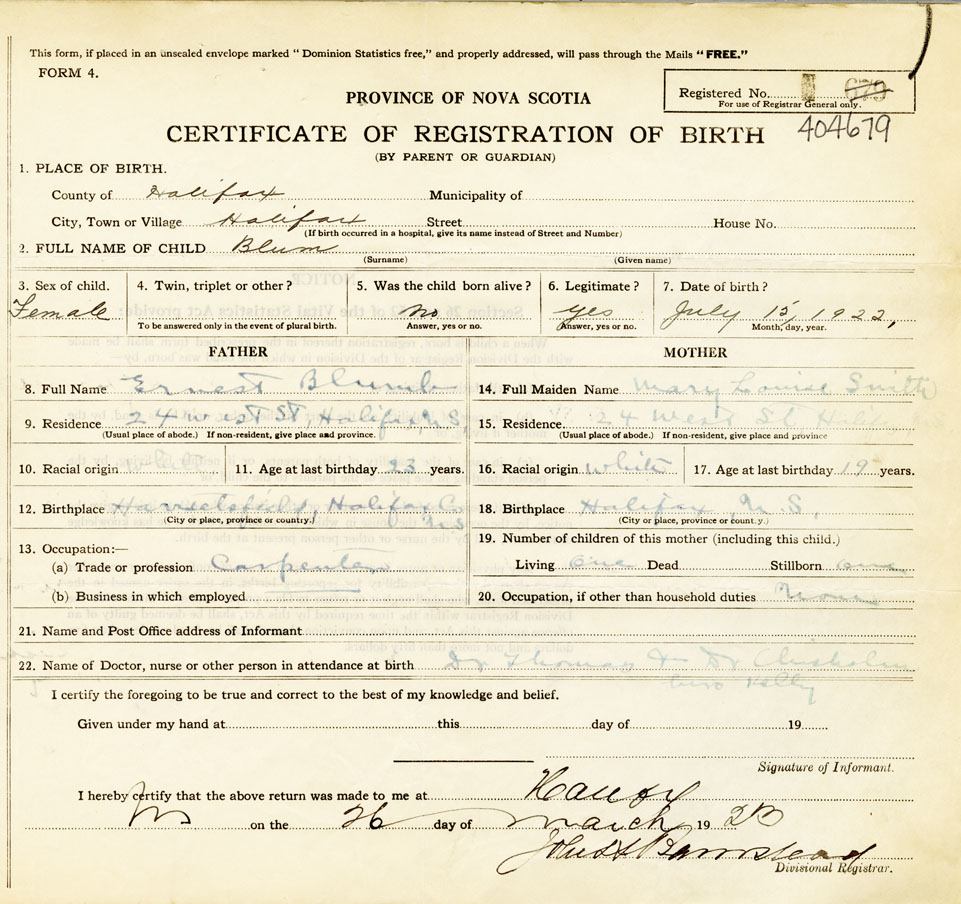 This form, if placed in an unsealed envelope marked “ Dominion Statistics free,” and properly addressed, will pass through the Mails “FREE.”
FORM 4.
Registered No. 679
For use of Registrar General only.
PROVINCE OF NOVA SCOTIA
404679
CERTIFICATE OF REGISTRATION OF BIRTH
(BY PARENT OR GUARDIAN)
1. PLACE OF BIRTH.
County of Halifax Municipality of
City, Town or Village Halifax Street House No.
(If birth occurred in a hospital, give its name instead of Street and Number)
2. FULL NAME OF CHILD Blum
(Surname) (Given name)
3. Sex of child. 4. Twin, triplet or other? 5. Was the child born alive? 6. Legitimate? 7. Date of birth?
Female no yes July 15, 1922,
To be answered only in the event of plural birth. Answer, yes or no. Answer, yes or no. Month, day, year.
FATHER MOTHER
8. Full Name Ernest Blumb 14. Full Maiden Name Mary Louise Smith
9. Residence 24 West St, Halifax, N.S, 15. Residence 24 West St, Halifax
(Usual place of abode.) If non-resident, give place and province. (Usual place of abode.) If non-resident, give place and province
10. Racial origin 11. Age at last birthday 23 years. 16. Racial origin White 17. Age at last birthday 19 years.
12. Birthplace Harrietsfield, Halifax Co. 18. Birthplace Halifax, N.S,
N.S
(City or place, province or country.) (City or place, province or count.y.)
13. Occupation:— 19. Number of children of this mother (including this child.)
(a) Trade or profession Carpenter Living One Dead Stillborn one
(b) Business in which employed 20. Occupation, if other than household duties None
21. Name and Post Office address of Informant
22. Name of Doctor, nurse or other person in attendance at birth Dr Thomas & Dr Chisholm
Kelly
I certify the foregoing to be true and correct to the best of my knowledge and belief.
Given under my hand at this day of 19
Signature of Informant.
I hereby certify that the above return was made to me at Halifax
NS on the 26 day of March 19 23
Divisional Registrar.